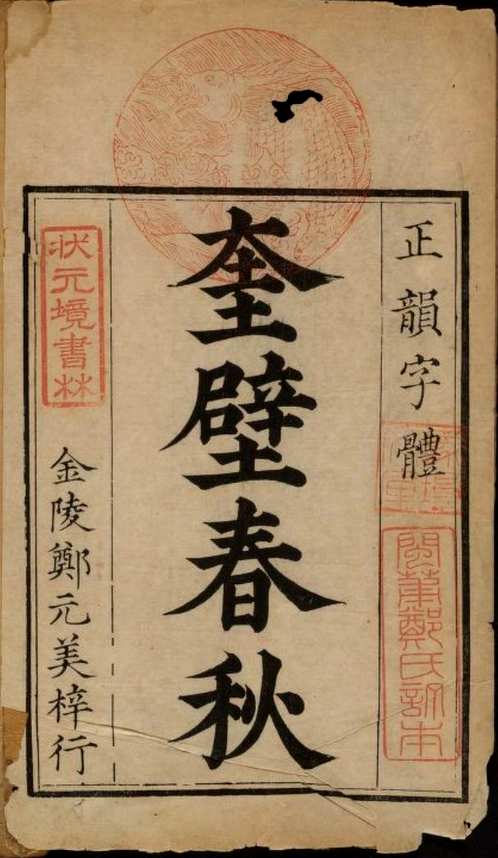 正韻字體
閩莆鄭氏訂本
奎壁春秋
狀元境書林
金陵鄭元美梓行